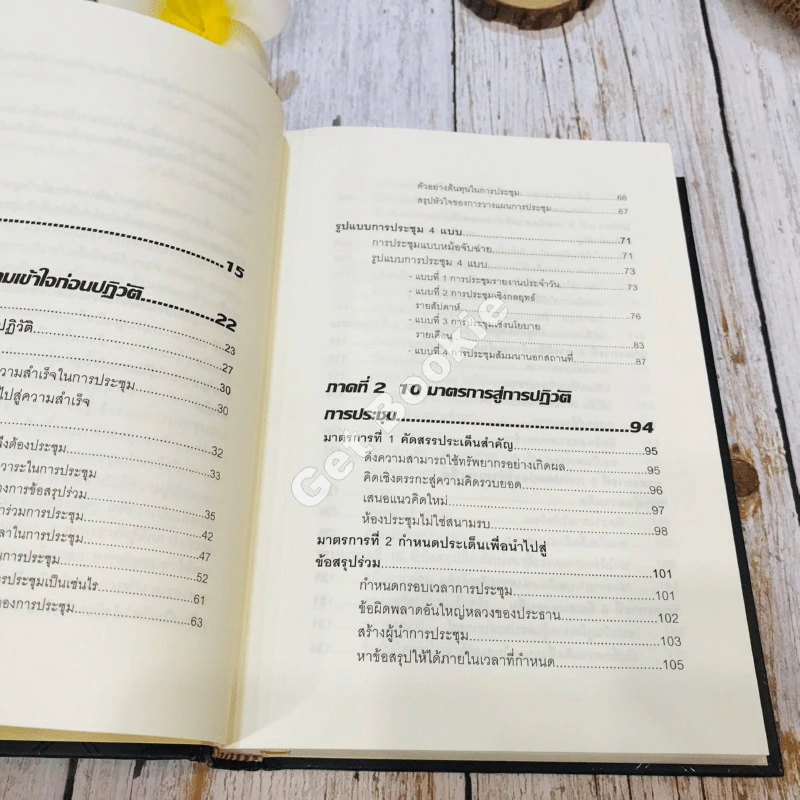 15
ามเข้าใจก่อนปฏิวัติ............22
ปฏิวัติ............23
............27
ความสำเร็จในการประชุม............30
ไปสู่ความสำเร็จ............30
ึงต้องประชุม............32
วาระในการประชุม............33
องการข้อสรุปร่วม............35
ร่วมการประชุม............42
ลาในการประชุม............47
นการประชุม............52
ารประชุมเป็นเช่นไร............61
ของการประชุม............63
ตัวอย่างต้นทุนในการประชุม............66
สรุปหัวใจของการวางแผนการประชุม............67
รูปแบบการประชุม 4 แบบ............71
การประชุมแบบหม้อจับฉ่าย............71
รูปแบบการประชุม 4 แบบ............73
- แบบที่ 1 การประชุมรายงานประจำวัน............73
- แบบที่ 2 การประชุมเชิงกลยุทธ์
รายสัปดาห์............76
- แบบที่ 3 การประชุมเชิงนโยบาย
รายเดือน............83
- แบบที่ 4 การประชุมสัมมนานอกสถานที่............87
ภาคที่ 2 10 มาตรการสู่การปฏิวัติ
การประชุม............94
มาตรการที่ 1 คัดสรรประเด็นสำคัญ............95
ดึงความสามารถใช้ทรัพยากรอย่างเกิดผล............95
คิดเชิงตรรกะสู่ความคิดรวบยอด............96
เสนอแนวคิดใหม่............97
ห้องประชุมไม่ใช่สนามรบ............98
มาตรการที่ 2 กำหนดประเด็นเพื่อนำไปสู่
ข้อสรุปร่วม............101
กำหนดกรอบเวลาการประชุม............101
ข้อผิดพลาดอันใหญ่หลวงของประธาน............102
สร้างผู้นำการประชุม............103
หาข้อสรุปให้ได้ภายในเวลาที่กำหนด............105
Get Bookie